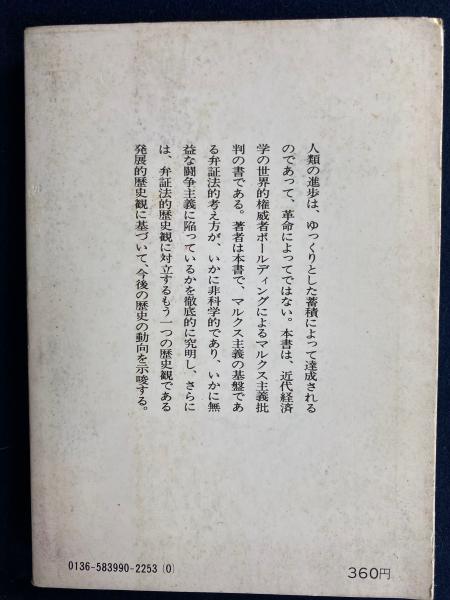 人類の進歩は、ゆっくりとした蓄積によって達成される
のであって、革命によってではない。本書は、近代経済
学の世界的権威者ボールディングによるマルクス主義批
判の書である。著者は本書で、マルクス主義の基盤であ
る弁証法的考え方が、いかに非科学的であり、いかに無
益な闘争主義に陥っているかを徹底的に究明し、さらに
は、弁証法的歴史観に対立するもう一つの歴史観である
発展的歴史観に基づいて、今後の歴史の動向を示唆する。
0136-583990-2253(0)
360円